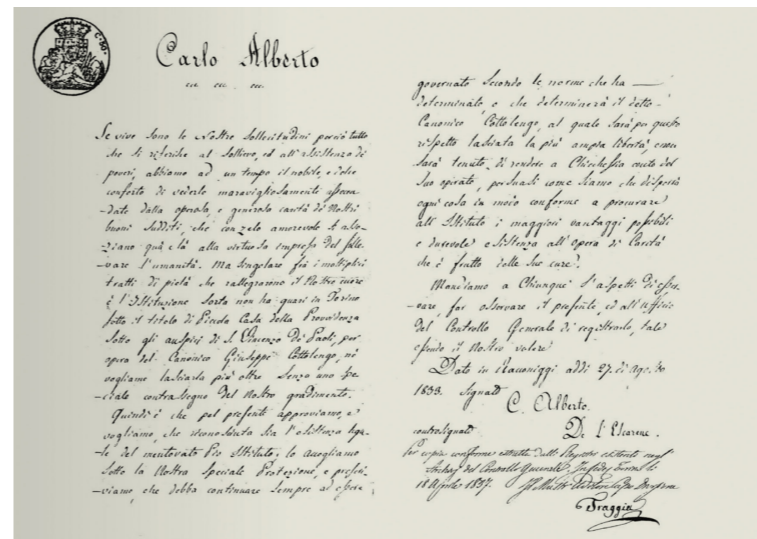 C. 50.
Carlo Alberto
ec. ec. ec.
Se vive sono le Nostre Sollecitudini perciò tutto
che si riferisce al Sollievo, ed all'assistenza de'
poveri, abbiamo ad un tempo il nobile, e dolce
conforto di vederle maravigliosamente assecon-
-date dalla operosa, e generosa carità de' Nostri
buoni Sudditi, che con zelo amorevole s'asso-
-ziano quà e là alla virtuosa impresa del solle-
-vare l'umanità. Ma singolare fra i moltiplici
tratti di pietà che rallegrarono il Nostro cuore
è l'Istituzione sorta non ha guari in Torino
sotto il titolo di Piccola Casa della Provvidenza
sotto gli auspici di S. Vincenzo De Paoli, per
opera del Canonico Giuseppe Cottolengo, nè
vogliamo lasciarla più oltre senza uno spe-
ciale contrassegno del Nostro gradimento.
Quindi è che pel presente approviamo, e
vogliamo, che riconosciuta sia l'esistenza lega-
-le del mentovato Pio Istituto; lo accogliamo
sotto la Nostra Speciale Protezione, e prescri-
-viamo, che debba continuare sempre ad essere
governato secondo le norme che ha
determinato, e che determinerà il detto
Canonico Cottolengo, al quale sarà per questo
rispetto lasciata la più ampia libertà, e non
sarà tenuto di rendere a Chichessia conto del
suo operato, persuasi come siamo che disporrà
ogni cosa in modo conforme a procurare
all'Istituto i maggiori vantaggi possibili
e durevole esistenza all'opera di Carità
che è frutto delle sue cure.
Mandiamo a Chiunque s'aspetti di osser-
-vare, far osservare il presente, ed all'Ufficio
del Controllo Generale di registrarlo, tale
essendo il Nostro volere
Dato in Racconiggi addì 27. di Agosto
1833. Signato
C. Alberto.
controsignato De l'Escarene.
Per copia conforme estratta dalli Registri esistenti negli
Archivj del Controllo Generale. In fede, Torino li
18 Aprile 1837.
Traggia